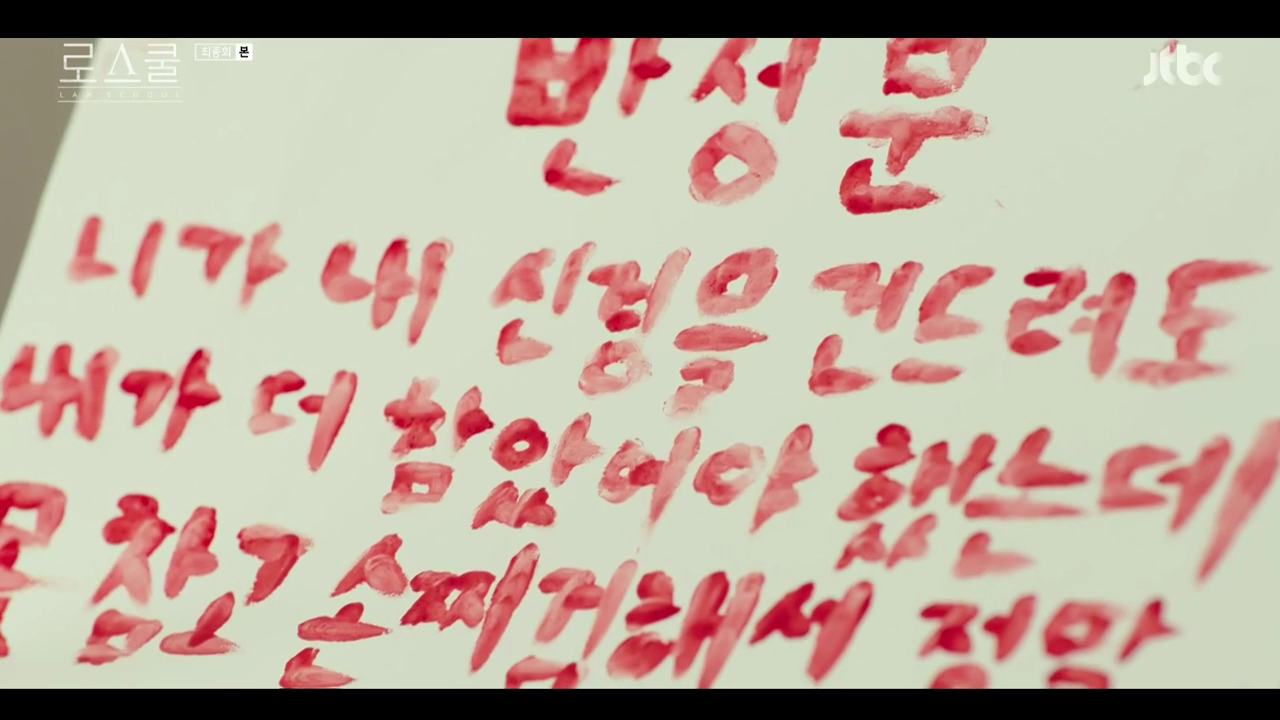 로스쿨 최종회 본
LAW SCHOOL
jtbc
반성문
니가 내 신경을 건드려도
내가 더 참았어야 했는데
못 참고 손찌검해서 정말